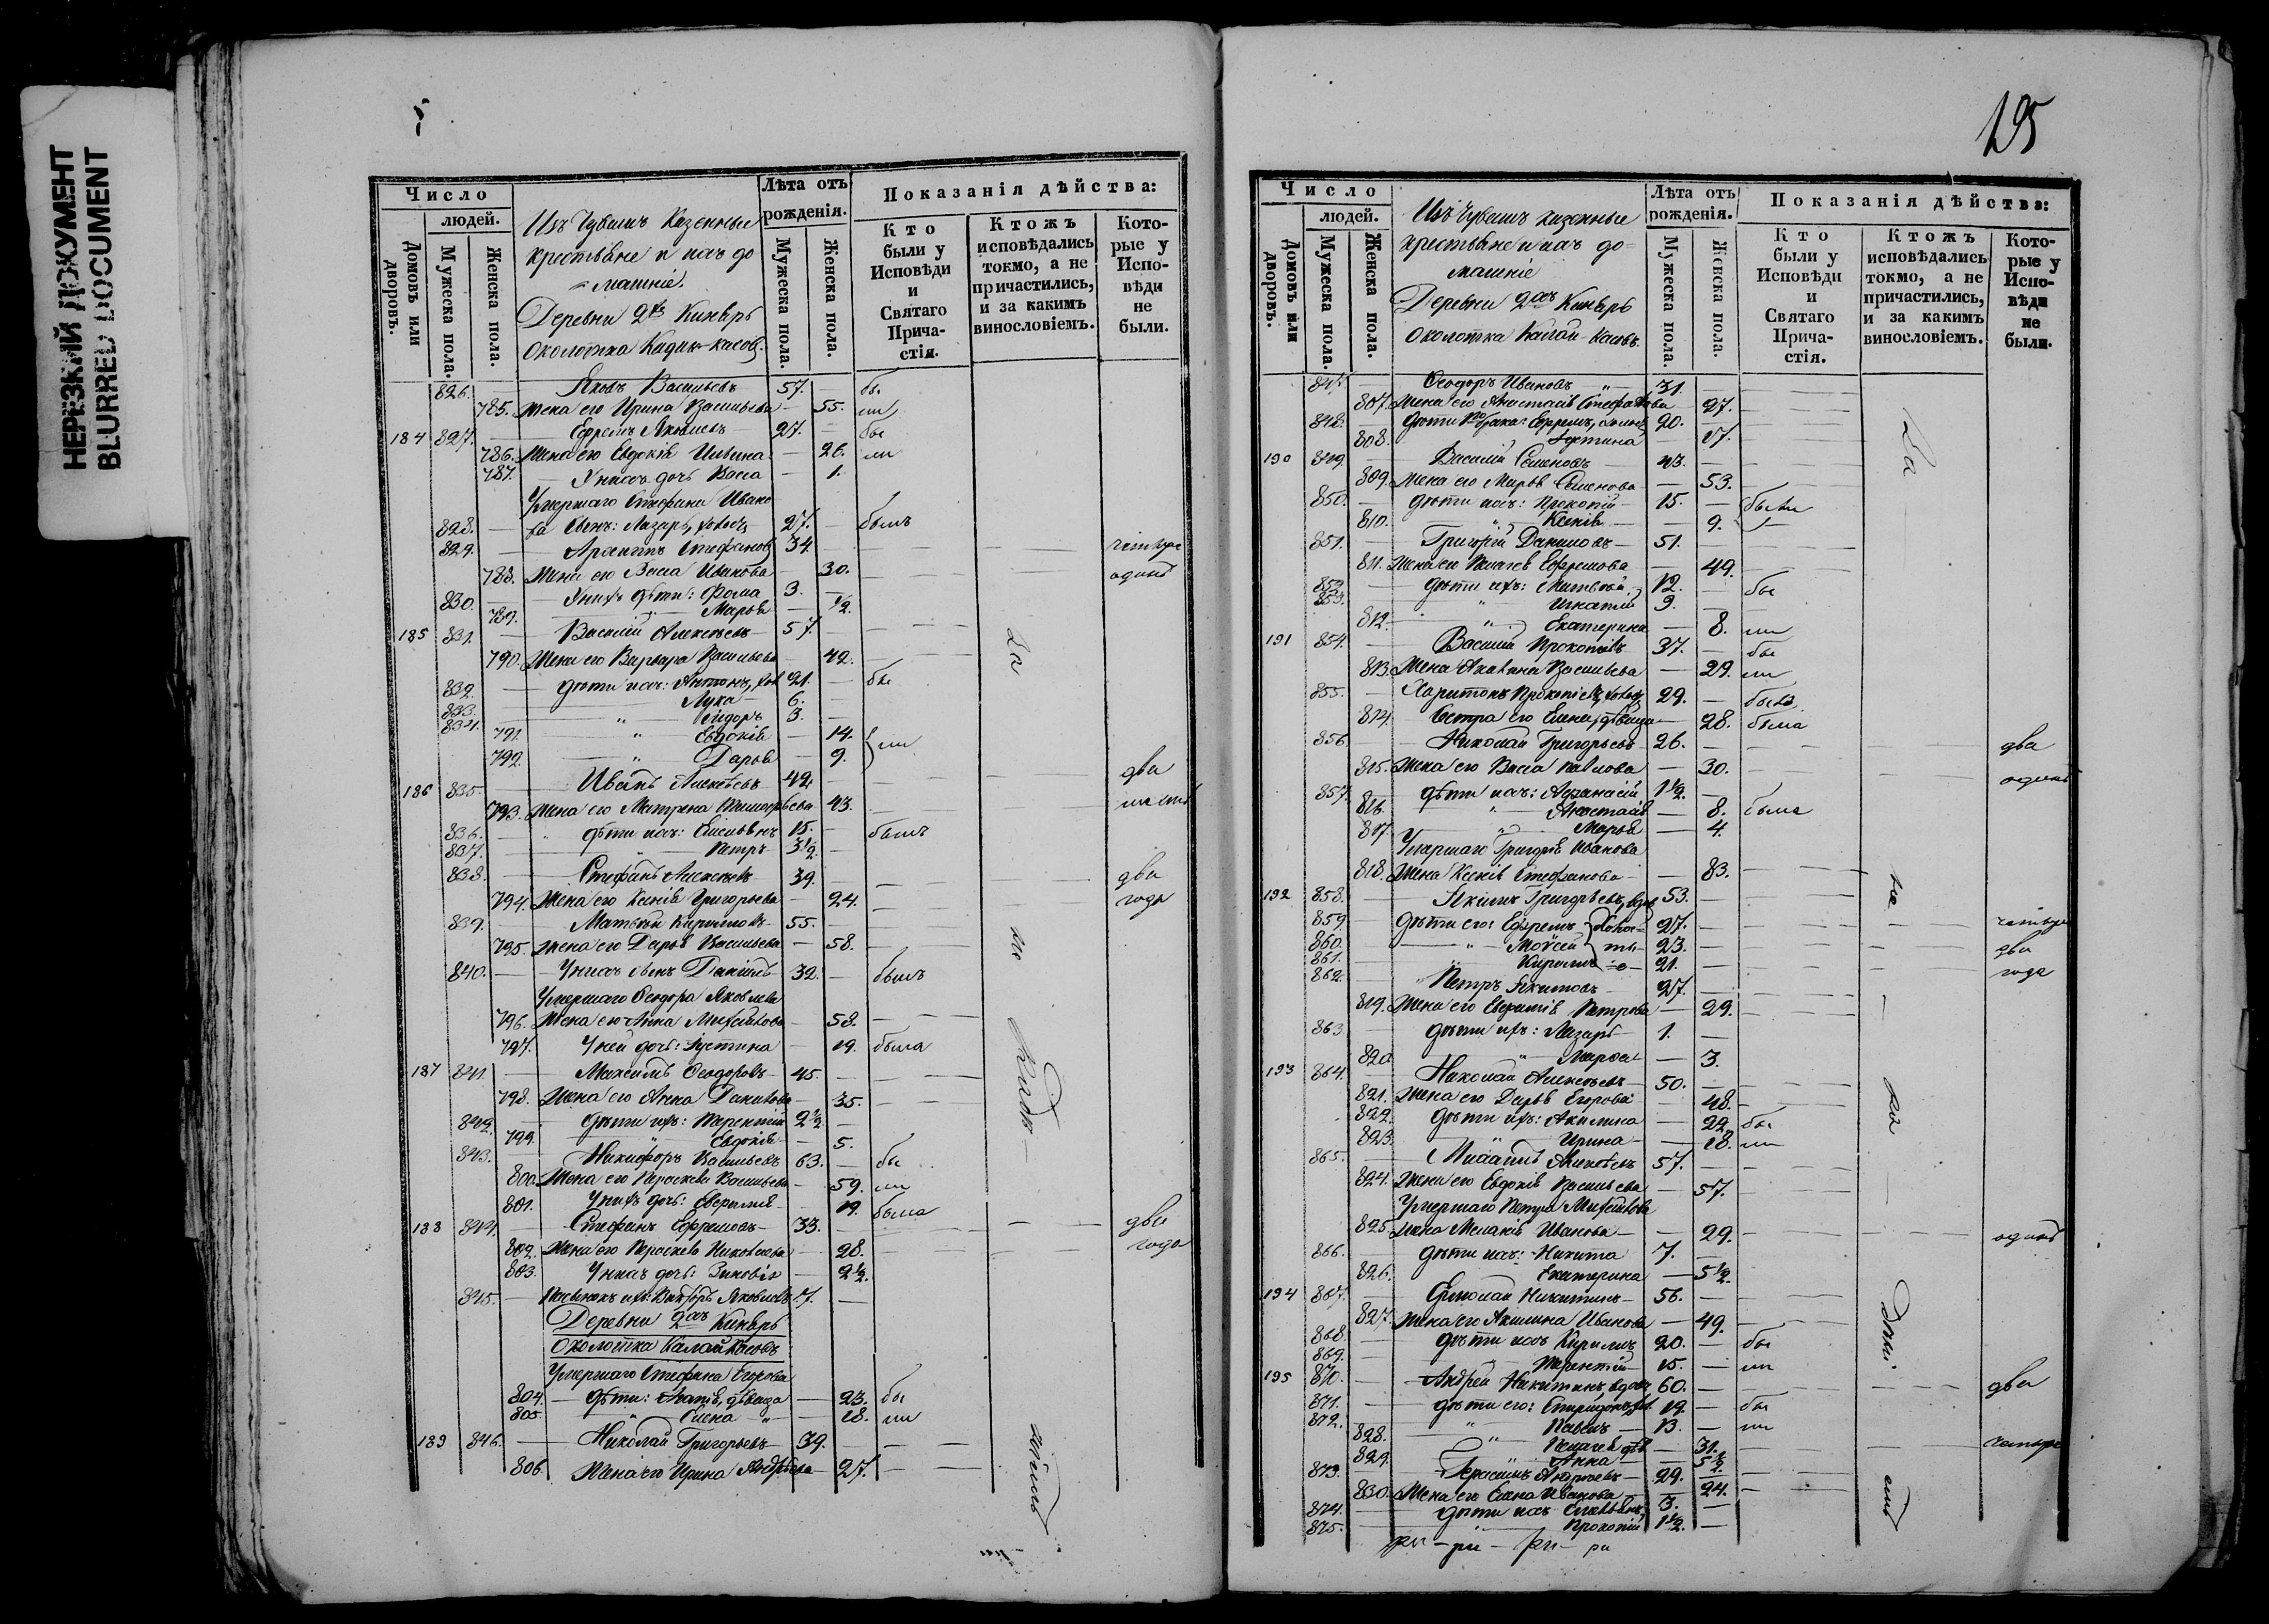 НЕРЕЗКИЙ ДОКУМЕНТ
BLURRED DOCUMENT
Число
людей.
Домовъ или дворовъ.
Мужеска пола.
Женска пола.
Изъ Чувашъ Казенные
крестьяне и ихъ до
машніе.
Деревни 2хъ Киняръ
Околотка Кадик-касовъ
Лѣта отъ рожденія.
Мужеска пола.
Женска пола.
Показанія дѣйства:
Кто были у Исповѣди и Святаго Причастія.
Ктожъ исповѣдались токмо, а не причастились, и за какимъ винословіемъ.
Которые у Исповѣди не были.
826. — Яковъ Васильевъ 57. — бы
785. Жена его Ирина Васильева — 55. ли
184 827. — Ефремъ Яковлевъ 27. — бы
786. Жена его Евдокія Ильина — 26. ли
787. У нихъ дочь Васса — 1.
Умершаго Стефана Ивано
828. — ва сынъ: Лазарь, холос 27. — былъ
829. — Стефановъ 34. — четыре
788. Жена его Васса Иванова — 30. — одинъ
830. — У нихъ дѣти: Фома 3. —
789. " Марья — 1/2.
185 831. — Василій Алексѣевъ 57. —
790. Жена его Варвара Васильева — 42.
832. — дѣти ихъ: Антонъ, хол 21. — бы
833. — Лука 6. —
834. — " Сидоръ 3. —
791. " Евдокія — 14. ли
792. " Дарья — 9.
186 835. — Иванъ Алексѣевъ 42. — два
793. Жена его Матрена — 43.
836. — дѣти ихъ: 15. — былъ
837. — " Петръ 3 1/2. —
838. — Стефанъ Алексѣевъ 39. — два
794. Жена его Ксенія Григорьева — 24. — года
839. — Матвѣй Кириловъ 55. —
795. Жена его Дарья Васильева — 58.
840. — У нихъ сынъ Даніилъ 32. — былъ
Умершаго Ѳеодора Яковлева
796. Жена его Анна Михайлова — 58.
797. У ней дочь: Іустина — 19. была
187 841. — Максимъ Ѳеодоровъ 45. —
798. Жена его Анна Данилова — 35.
842. — дѣти ихъ: 2 1/2 —
799. " Евдокія — 5.
843. — Никифоръ Васильевъ 63. — бы
800. Жена его Параскева Васильева — 59. ли
801. У нихъ дочь: — 19. была
188 844. — Стефанъ Ефремовъ 33. — два
802. Жена его Параскева Николаева — 28. — года
803. У нихъ дочь: Зиновія — 2 1/2.
845. — ихъ: Викторъ Яковлевъ 17. —
Деревни 2хъ Киняръ
Околотка Калайкасовъ
Умершаго Стефана Егорова
804. дѣти: Агапія, дѣвица — 23. бы
805. " Елена " — 18. ли
189 846. — Николай Григорьевъ 39. —
806. Жена его Ирина Андреева — 27.
За
не
195
Число
людей.
Домовъ или дворовъ.
Мужеска пола.
Женска пола.
Изъ Чувашъ казенные
крестьяне и ихъ до=
машніе
Деревни 2хъ Киняръ
Околотка Калай-касовъ.
Лѣта отъ рожденія.
Мужеска пола.
Женска пола.
Показанія дѣйства:
Кто были у Исповѣди и Святаго Причастія.
Ктожъ исповѣдались токмо, а не причастились, и за какимъ винословіемъ.
Которые у Исповѣди не были.
847. — Ѳеодоръ Ивановъ 31. —
807. Жена его Анастасія Стефанова — 27.
848. — Дѣти 1го брака: Ефремъ, 20. —
808. Іустина — 17.
190 849. — Василій Семеновъ 43. —
809. Жена его Марья Семенова — 53.
850. — дѣти ихъ: Прокопій 15. — были
810. " Ксенія — 9.
851. — Григорій Даниловъ 51. —
811. Жена его Пелагея Ефремова — 49.
852. — дѣти ихъ: Матвѣй 12. — бы
853. — " Игнатій 9. —
812. " Екатерина — 8. ли
191 854. — Василій Прокопьевъ 37. — бы
813. Жена Васильева — 29. ли
855. — Харитонъ Прокопіевъ, холос 29. — былъ
814. Сестра его Елена, дѣвица — 28. была
856. — Николай Григорьевъ 26. — два
815. Жена его Васса Павлова — 30. — одинъ
857. — дѣти ихъ: Аѳанасій 1 1/2. —
816. " Анастасія — 8. была
817. " Марья — 4.
Умершаго Григорія Иванова
818. Жена Ксенія Стефанова — 83.
192 858. — Якимъ Григорьевъ, вдов 53. —
859. — дѣти его: Ефремъ холос= 27. — четыре
860. — " Моѵсей ты 23. — два
861. — " Кирилъ 21. — года
862. — Петръ Якимовъ 27. —
819. Жена его Евфимія Петрова — 29.
863. — дѣти ихъ: Лазарь 1. —
820. " Марѳа — 3.
193 864. — Николай Алексѣевъ 50. —
821. Жена его Дарья Егорова — 48.
822. дѣти ихъ: Акилина — 22. бы
823. Ирина — 18. ли
865. — Михаилъ Алексѣевъ 57. —
824. Жена его Евдокія Васильева — 57.
Умершаго Петра Михайлова
825. Жена Меланія Иванова — 29. — одинъ
866. — дѣти ихъ: Никита 7. —
826. Екатерина — 5 1/2.
194 867. — Ермолай Никитинъ 56. —
827. Жена его Акилина Иванова — 49.
868. — дѣти ихъ Кирилъ 20. — бы
869. — Терентій 15. — ли
195 870. — Андрей Никитинъ, вдовъ 60. — два
871. — дѣти его: Спиридонъ, хол. 19. — бы
872. — " Павелъ 13. — ли
828. " Пелагея дѣв — 31. — четыре
829. " Анна — 5 1/2.
873. — Герасимъ Андреевъ 29. —
830. Жена его Елена Иванова — 24.
874. — дѣти ихъ 3. —
875. — Прокопій 1 1/2. —
За
не